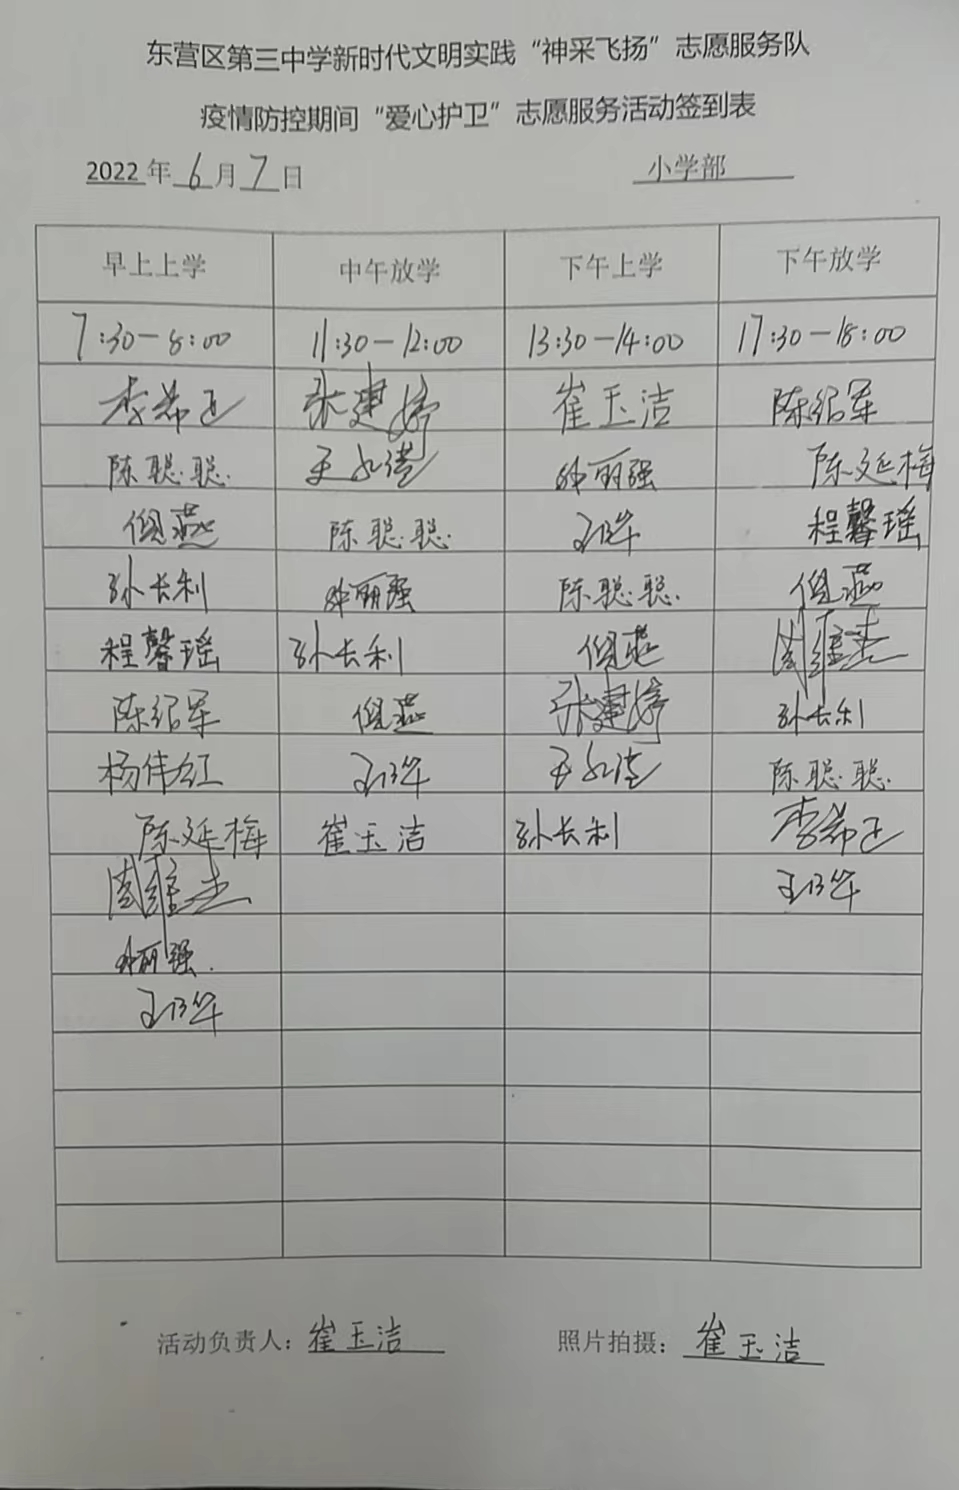 东营区第三中学新时代文明实践“神采飞扬”志愿服务队
疫情防控期间“爱心护卫”志愿服务活动签到表
2022年6月7日 小学部
早上上学 中午放学 下午上学 下午放学
7:30-8:00 11:30-12:00 13:30-14:00 17:30-18:00
李希正 张建婷 崔玉洁 陈绍军
陈聪聪 陈延梅
倪燕 陈聪聪 程馨瑶
孙长利 陈聪聪 倪燕
程馨瑶 孙长利 倪燕 周维杰
陈绍军 倪燕 张建婷 孙长利
杨伟红 陈聪聪
陈延梅 崔玉洁 孙长利 李希正
周维杰
活动负责人：崔玉洁 照片拍摄：崔玉洁